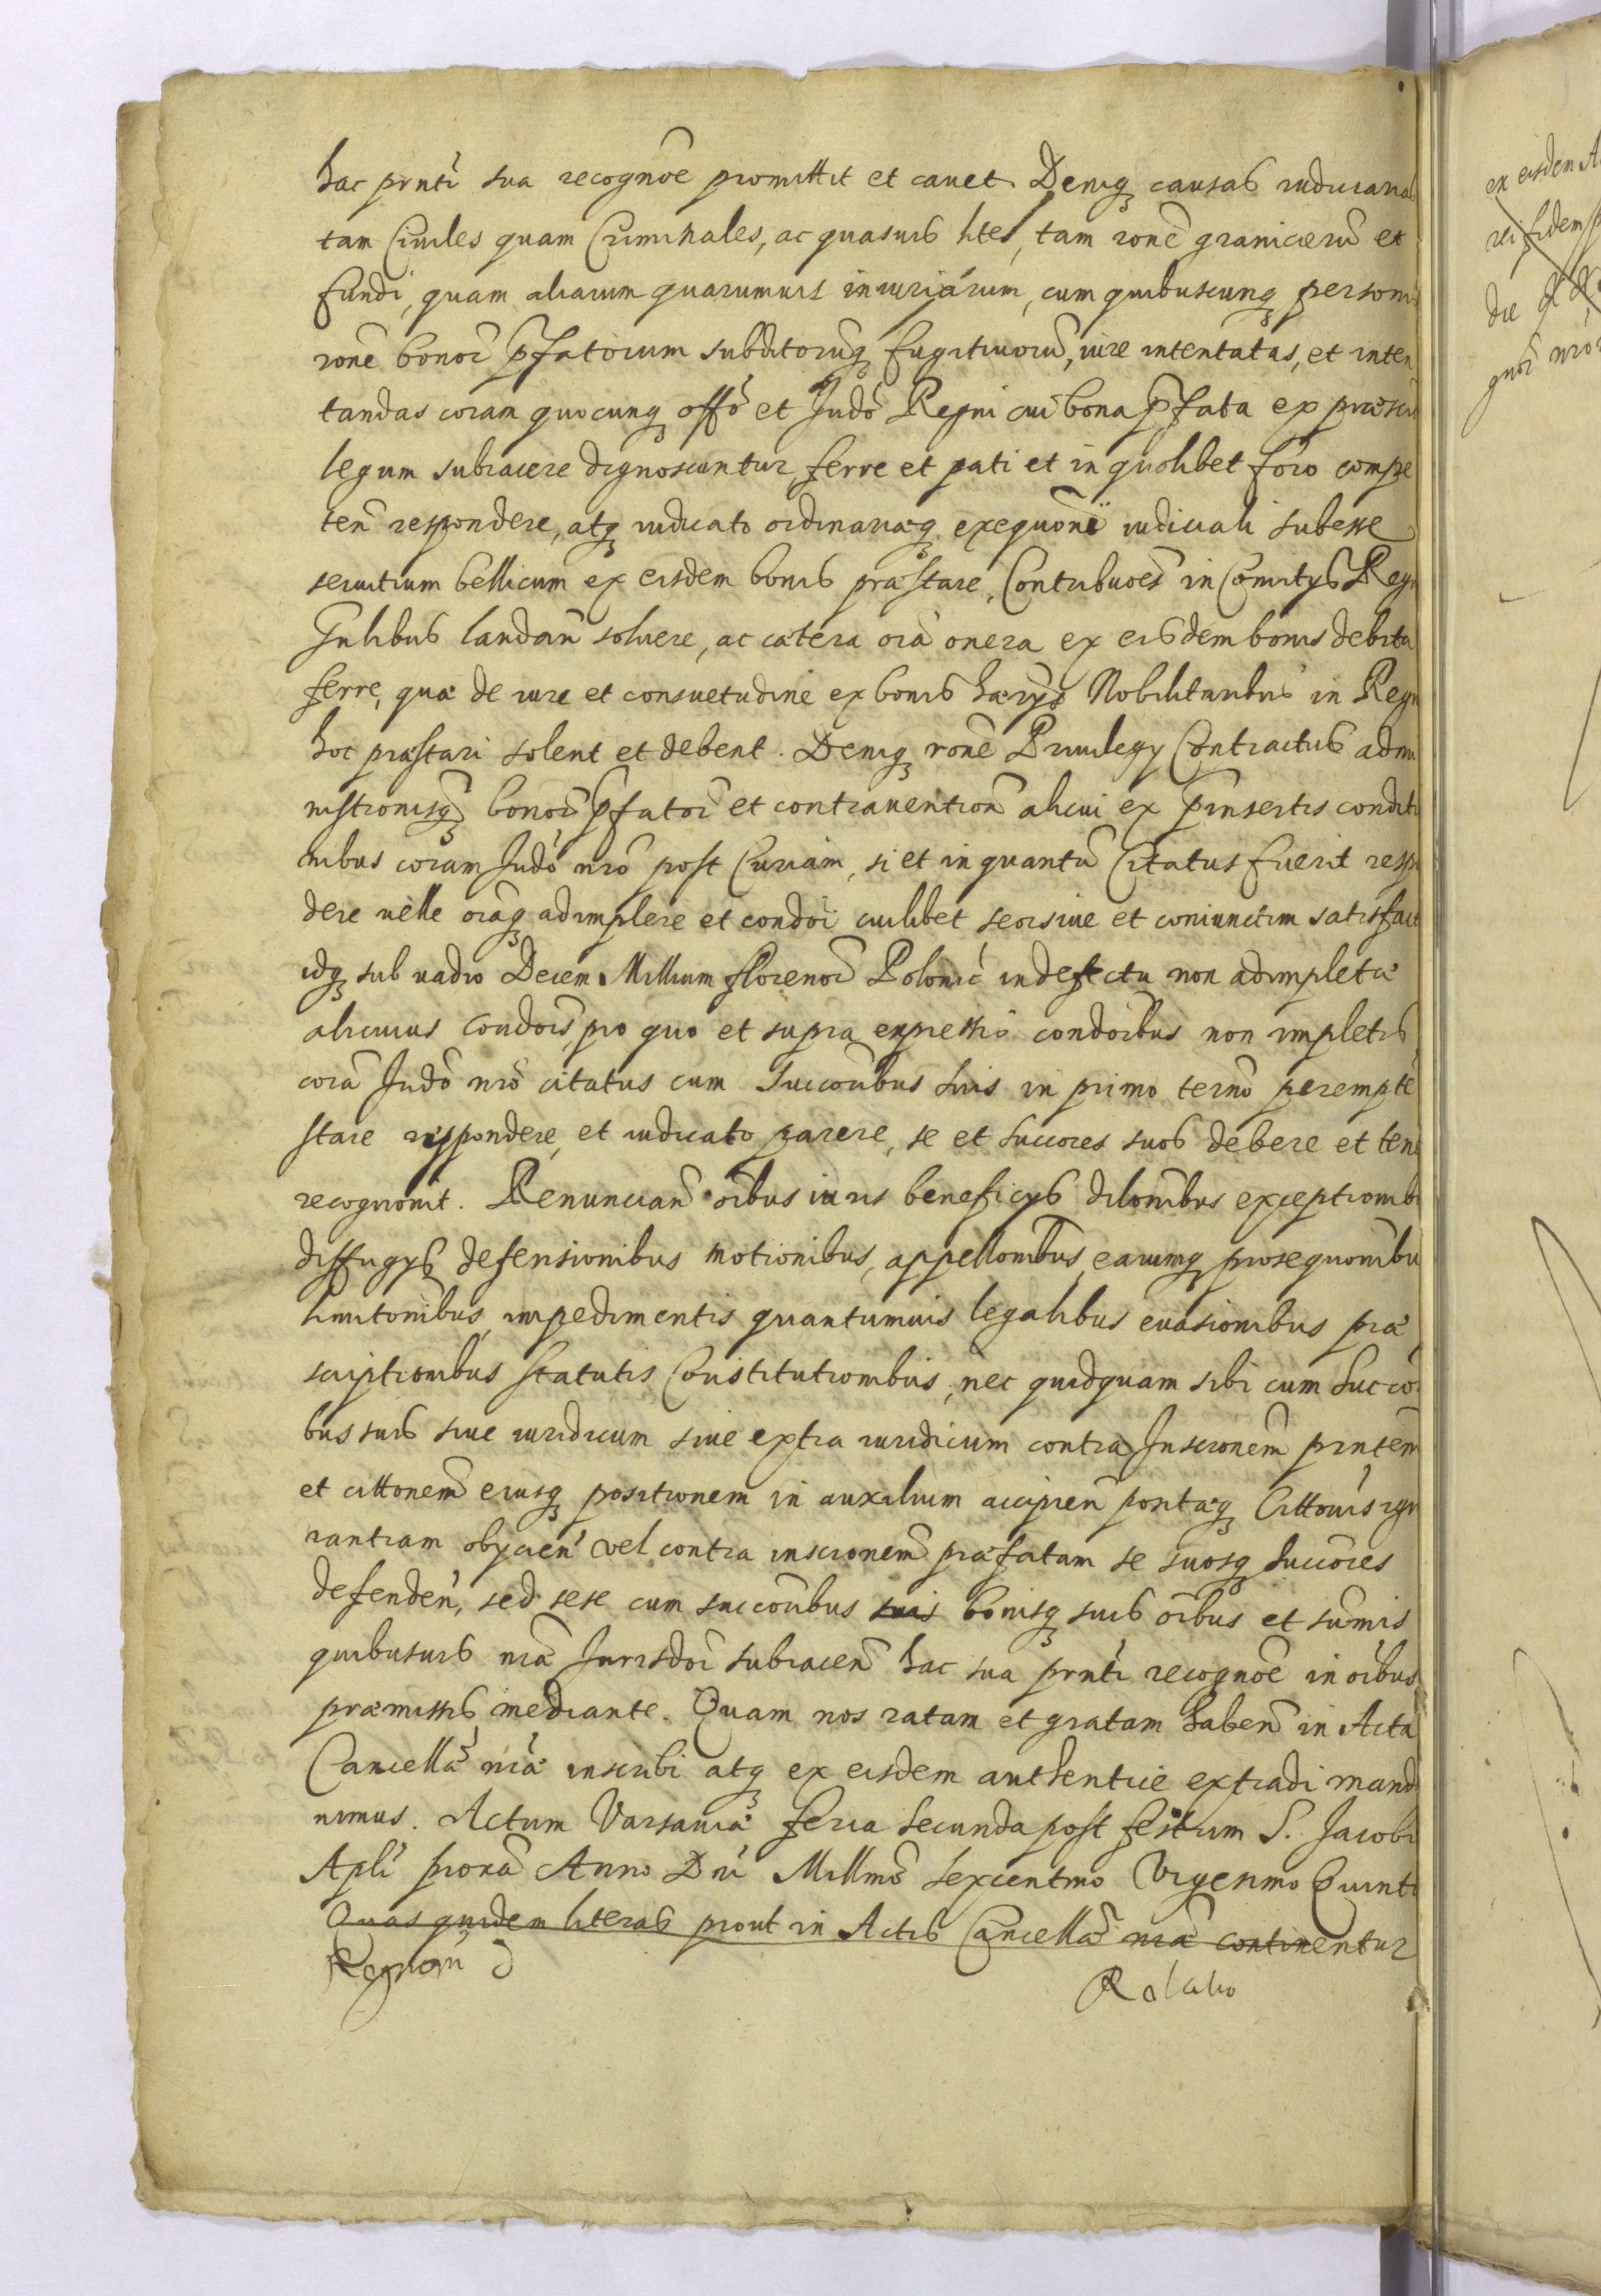 hac prnti sua recognõe promittit et cauet. Deniq causas iudiciaria
tam Ciuiles quam Criminales, ac quasuis lites, tam rõne granicierũ et
fundi, quam aliarum quarumuis iniuriarum, cum quibuscunq person
rõne bonor pfatorum subditorũq fugitiuorũ, iure intentatas, et inten
tandas coram quocunq offõ et Judõ Regni cui bona pfata ex præscri
legum subiacere dignoscuntur, ferre et pati et in quolibet foro compe
teñ respondere, atq iudicato ordinariæq exequõni iudiciali subesse
seruitium bellicum ex eisdem bonis præstare, Contribuões in Comitys Regn
Gnlibus laudañ soluere, ac cætera oĩa onera ex eisdem bonis debita
ferre, quæ de iure et consuetudine ex bonis hærys Nobilitaribus in Regn
hoc præstari solent et debent. Deniq rõne Priuilegy Contractus admi
nistrõnisq bonor pfator et contrauention alicui ex pinsertis conditi
nibus coram Judõ nrõ post Curiam, si et in quantũ Citatus fuerit respo
dere uelle oĩaq adimplere et condõi cuilibet seorsiue et coniunctim satisfac
idq sub uadio Decem Millium florenor Polonic in defectu non adimpletæ
alicuius condõis, pro quo et supra expressis condõibus non impletis
corã Judõ nrõ citatus cum Succoribus suis in primo termõ perempte
stare respondere, et iudicato parere, se et succores suos debere et ten
recognouit. Renuncian oĩbus iuris beneficys dilõnibus exceptionib
diffugys defensionibus motionibus, appellõnibus, earumq prosequõnibu
limitõnibus, impedimentis quantumuis legalibus euasionibus præ
scriptionibus statutis Constitutionibus, nec quidquam sibi cum Succo
bus suis siue iuridicum siue extra iuridicum contra Inscrõnem prntem
et cittõnem eiusq positionem in auxilium accipien positæq Cittõnis ign
rantiam obycien vel contra inscrõnem præfatam se suosq succores
defenden, sed sese cum succoribus suis bonisq suis oĩbus et sumis
quibusuis nræ Jurisdõi subiacen hac sua prnti recognõe in oĩbus
præmissis mediante. Quam nos ratam et gratam haben in Acta
Cancellæ nræ inscribi atq ex eisdem authentice extradi mand
uimus. Actum Varsauiæ feria secunda post festum S. Jacobi
Apli proxã Anno Dni Millmo sexcentmo Vigesimo Quinto
Quas quidem literas prout in Actis Cancellæ nræ continentur